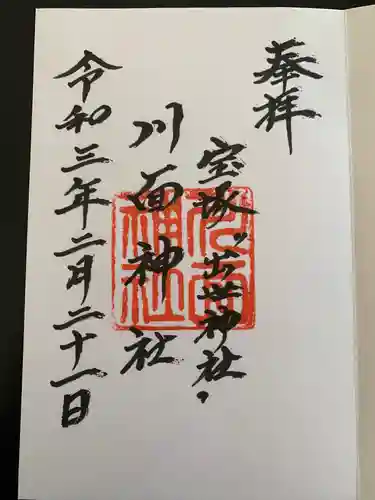 奉拝
宝塚〃出世神社、
川面神社
令和三年二月二十一日